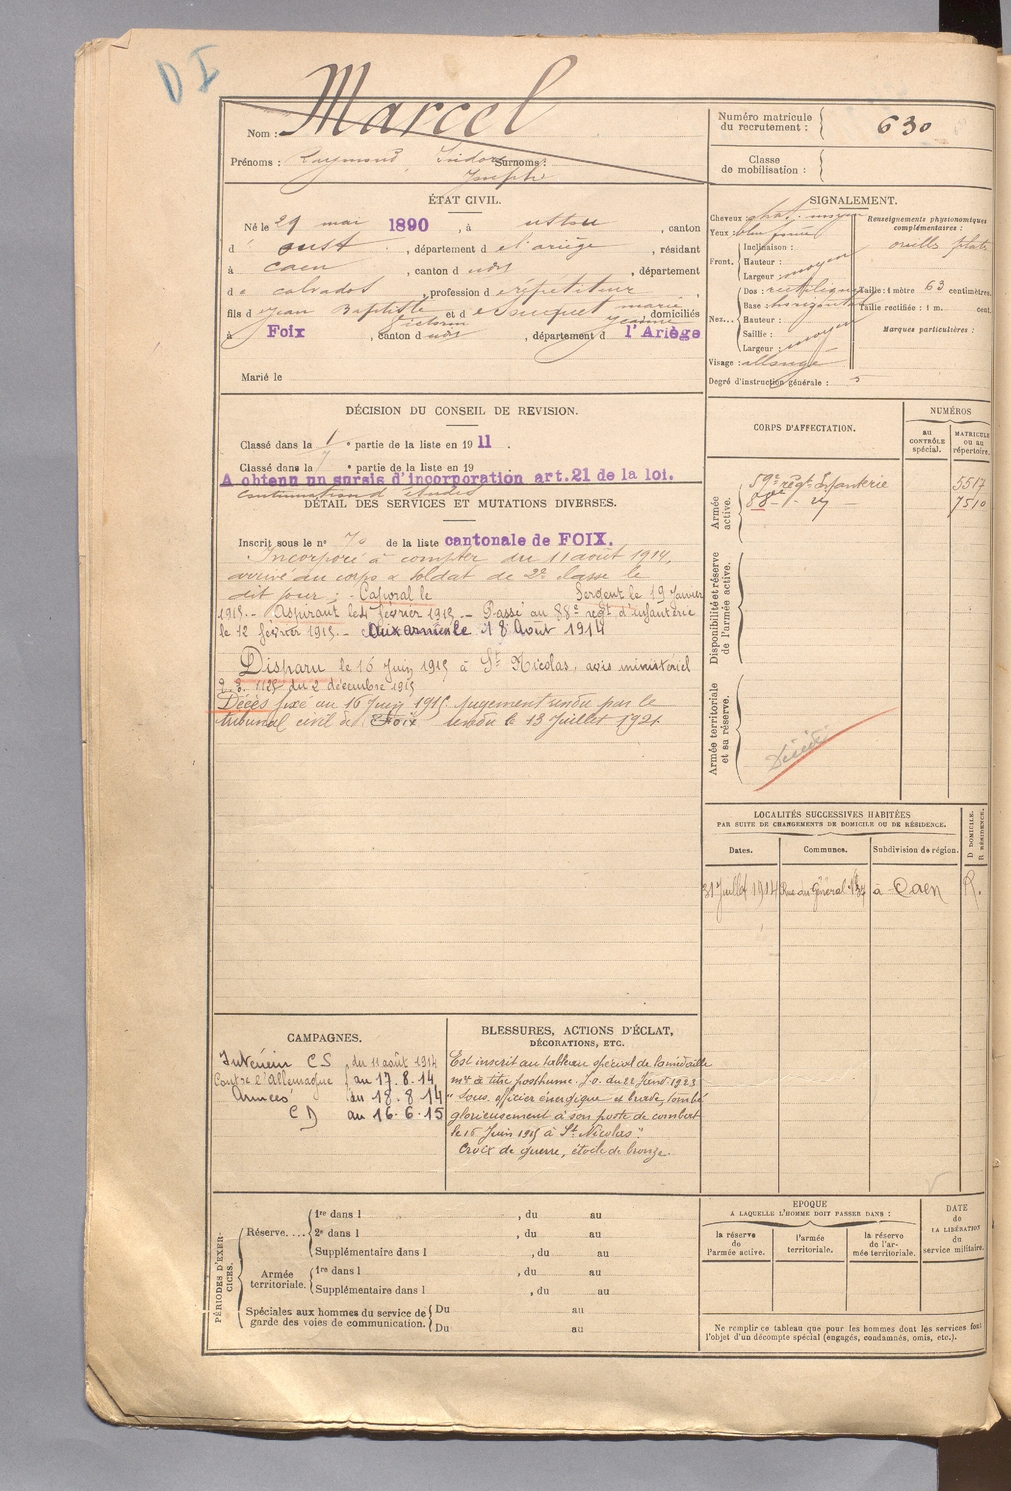 D I
Nom : Marcel
Prénoms : Raymond, Isidore Surnoms :
Joseph
Numéro matricule du recrutement : 630
Classe de mobilisation :
ÉTAT CIVIL.
Né le 29 mai 1890, à Ustou, canton
d'Oust, département de l'Ariège, résidant
à Caen, canton dudit, département
du Calvados, profession de répétiteur
fils de Jean Baptiste Victorin et de Souquet Marie Jeanne, domiciliés
à Foix, canton dudit, département de l'Ariège
Marié le
SIGNALEMENT.
Cheveux : chat. moyen
Yeux : bleu foncé
Front. Inclinaison :
Hauteur :
Largeur : moyen
Nez. Dos : rectiligne
Base : horizontal
Hauteur :
Saillie : moyen
Largeur :
Visage : allongé
Renseignements physionomiques complémentaires :
oreille plate
Taille : 1 mètre 63 centimètres.
Taille rectifiée : 1 m. cent.
Marques particulières :
Degré d'instruction générale : 5
DÉCISION DU CONSEIL DE REVISION.
Classé dans la 1 e partie de la liste en 1911.
Classé dans la e partie de la liste en 19
A obtenu un sursis d'incorporation art.21 de la loi.
continuation d'études
DÉTAIL DES SERVICES ET MUTATIONS DIVERSES.
Inscrit sous le n° 70 de la liste cantonale de FOIX.
Incorporé à compter du 11 août 1914,
arrivé au corps & soldat de 2e classe le
dit jour ; Caporal le Sergent le 19 Janvier
1915.- Aspirant le 4 février 1915 - Passé au 88e régt d'infanterie
le 12 février 1915.- Aux armées le 18 Août 1914
Disparu le 16 Juin 1915 à St Nicolas, avis ministériel
1125 du 2 décembre 1915
Décès fixé au 16 Juin 1915 jugement rendu par le
tribunal civil de Foix rendu le 13 Juillet 1921
CORPS D'AFFECTATION.
NUMÉROS
au CONTRÔLE spécial.
MATRICULE ou au répertoire.
Armée active.
59e régt Infanterie 5517
88e - 1 - 7510
Disponibilité et réserve de l'armée active.
Armée territoriale et sa réserve.
Décédé
LOCALITÉS SUCCESSIVES HABITÉES
PAR SUITE DE CHANGEMENTS DE DOMICILE OU DE RÉSIDENCE.
Dates. Communes. Subdivision de région. D DOMICILE. R RÉSIDENCE.
31 Juillet 1914 Rue du Général à Caen R.
CAMPAGNES.
Intérieur CS du 11 août 1914
Contre l'Allemagne au 17.8.14
Armées du 18.8.14
CD au 16.6.15
BLESSURES, ACTIONS D'ÉCLAT,
DÉCORATIONS, ETC.
Est inscrit au tableau spécial de la médaille
mre à titre posthume. J.O. du 22 1923
"Sous-officier énergique et brave, tombé
glorieusement à son poste de combat
le 16 Juin 1915 à St Nicolas".
Croix de guerre, étoile de bronze.
PÉRIODES D'EXERCICES.
Réserve.... 1re dans l , du au
2e dans l , du au
Supplémentaire dans l , du au
Armée territoriale. 1re dans l , du au
Supplémentaire dans l , du au
Spéciales aux hommes du service de garde des voies de communication. Du au
Du au
EPOQUE
A LAQUELLE L'HOMME DOIT PASSER DANS :
la réserve de l'armée active.
l'armée territoriale.
la réserve de l'armée territoriale.
DATE de LA LIBÉRATION du service militaire.
Ne remplir ce tableau que pour les hommes dont les services font
l'objet d'un décompte spécial (engagés, condamnés, omis, etc.).